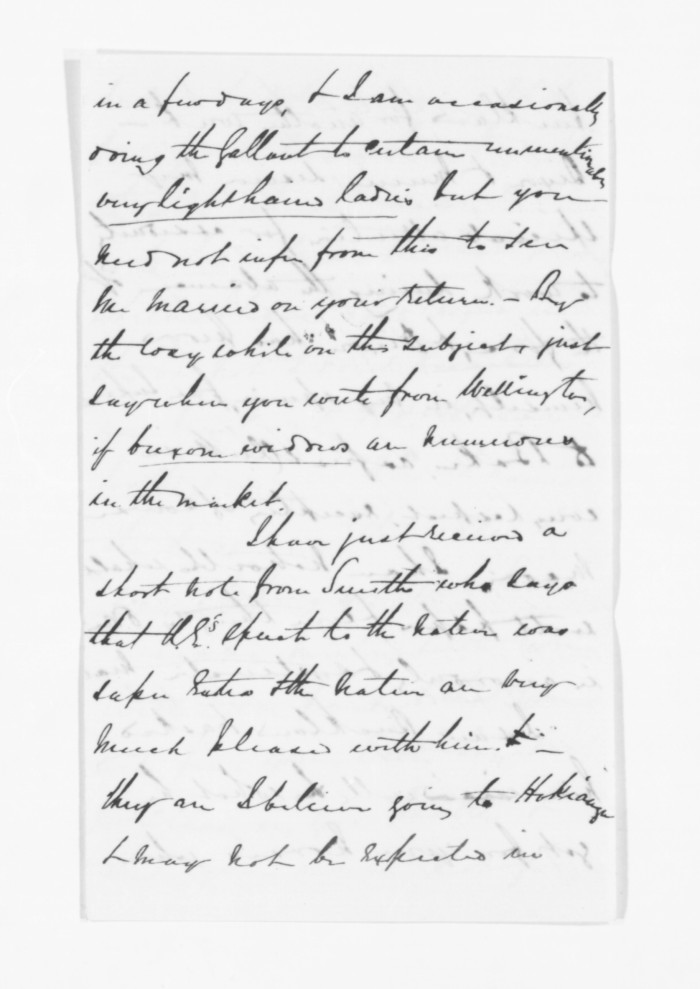 in a few days, & I am occasionally
doing the Gallant to certain unmentionable
very light haired ladies but you
need not infer from this to see
me married on your return. - By
the way while on this subject, just
say when you write from Wellington,
if buxom widows are numerous
in the market.
I have just received a
short note from Smith who says
that H.E's. speech to the natives was
super Extra & the natives are very
much pleased with him. -
they are I believe going to Hokianga
& may not be expected in